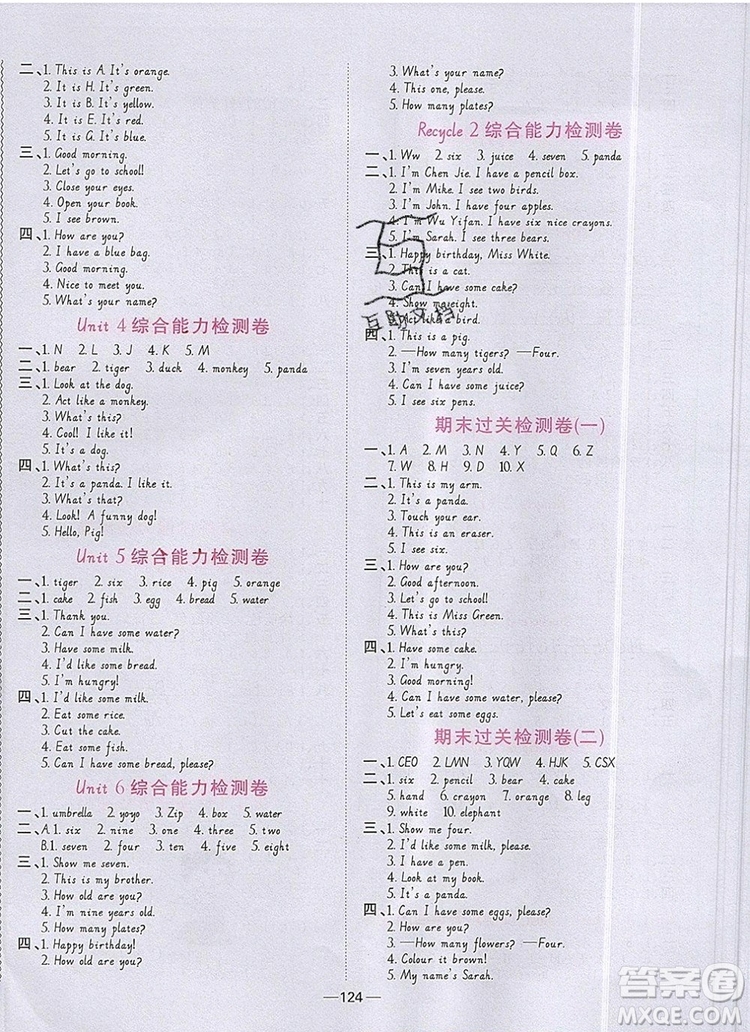 二、1. This is A. It's orange.
2. It is H. It's green.
3. It is B. It's yellow.
4. It is E. It's red.
5. It is G. It's blue.
三、1. Good morning.
2. Let's go to school!
3. Close your eyes.
4. Open your book.
5. I see brown.
四、1. How are you?
2. I have a blue bag.
3. Good morning.
4. Nice to meet you.
5. What's your name?
Unit 4 综合能力检测卷
一、1. N 2. L 3. J 4. K 5. M
二、1. bear 2. tiger 3. duck 4. monkey 5. panda
三、1. Look at the dog.
2. Act like a monkey.
3. What's this?
4. Cool! I like it!
5. It's a dog.
四、1. What's this?
2. It's a panda. I like it.
3. What's that?
4. Look! A funny dog!
5. Hello, Pig!
Unit 5 综合能力检测卷
一、1. tiger 2. six 3. rice 4. pig 5. orange
二、1. cake 2. fish 3. egg 4. bread 5. water
三、1. Thank you.
2. Can I have some water?
3. Have some milk.
4. I'd like some bread.
5. I'm hungry!
四、1. I'd like some milk.
2. Eat some rice.
3. Cut the cake.
4. Eat some fish.
5. Can I have some bread, please?
Unit 6 综合能力检测卷
一、1. umbrella 2. yoyo 3. Zip 4. box 5. under
二、A. 1. six 2. nine 3. one 4. three 5. two
B. 1. seven 2. four 3. ten 4. five 5. eight
三、1. Show me seven.
2. This is my brother.
3. How old are you?
4. I'm nine years old.
5. How many plates?
四、1. Happy birthday!
2. How old are you?
3. What's your name?
4. This one, please.
5. How many plates?
Recycle 2 综合能力检测卷
一、1. Ww 2. six 3. juice 4. seven 5. panda
二、1. I'm Chen Jie. I have a pencil box.
2. I'm Mike. I see two birds.
3. I'm John. I have four apples.
4. I'm Wu Yifan. I have six nice crayons.
5. I'm Sarah. I see three bears.
三、1. Happy birthday, Miss White.
2. This is a cat.
3. Can I have some cake?
4. Show me eight.
5. Act like a bird.
四、1. This is a pig.
2. —How many tigers? —Four.
3. I'm seven years old.
4. Can I have some juice?
5. I see six pens.
期末过关检测卷(一)
一、1. A 2. M 3. N 4. Y 5. Q 6. Z
7. W 8. H 9. D 10. X
二、1. This is my arm.
2. It's a panda.
3. Touch your ear.
4. This is an eraser.
5. This is an elephant.
三、1. How are you?
2. Good afternoon.
3. Let's go to school!
4. This is Miss Green.
5. What's this?
四、1. Have some cake.
2. I'm hungry.
3. Good morning!
4. Can I have some water, please?
5. Let's eat some eggs.
期末过关检测卷(二)
一、1. CEO 2. LMN 3. YQW 4. HJK 5. CSX
二、1. six 2. pencil 3. bear 4. cake
5. hand 6. crayon 7. orange 8. leg
9. white 10. elephant
三、1. Show me four.
2. I'd like some milk, please.
3. I have a pen.
4. Look at my book.
5. It's a panda.
四、1. Can I have some eggs, please?
2. How are you?
3. —How many flowers? —Four.
4. Colour it brown!
5. My name's Sarah.
—124—
互助文档
答案圈
MXQE.COM